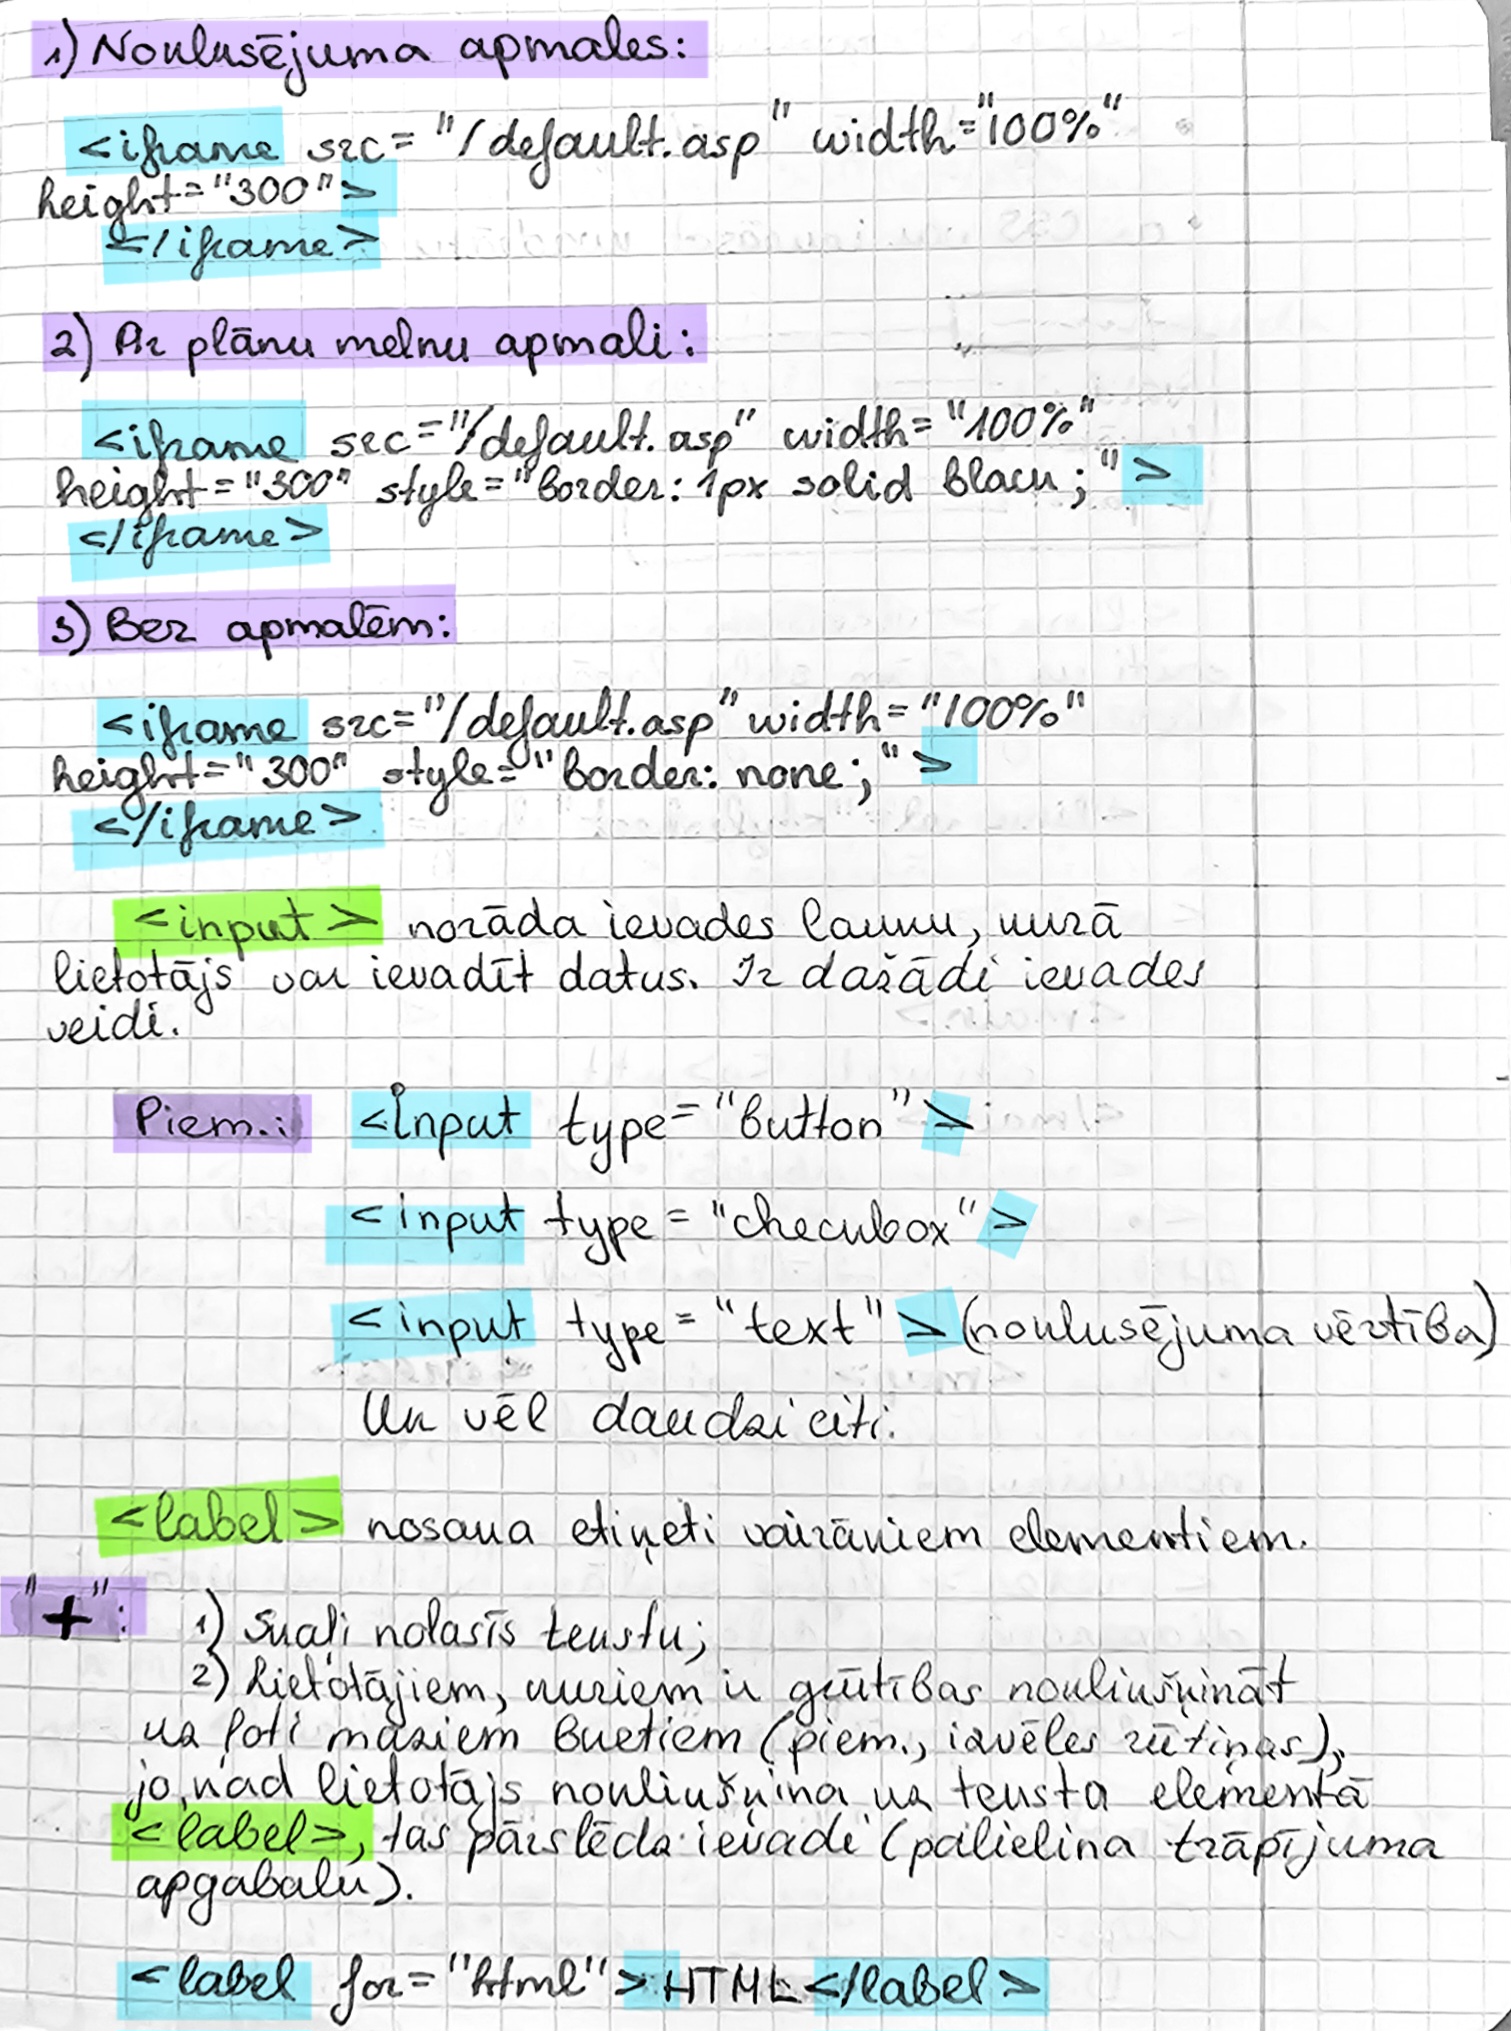 1) Noklusējuma apmales:
<iframe src="/default.asp" width="100%"
height="300">
</iframe>
2) Ar plānu melnu apmali:
<iframe src="/default.asp" width="100%"
height="300" style="border: 1px solid black;">
</iframe>
3) Bez apmalēm:
<iframe src="/default.asp" width="100%"
height="300" style="border: none;">
</iframe>
<input> norāda ievades lauku, kurā
lietotājs var ievadīt datus. Ir dažādi ievades
veidi.
Piem.: <Input type="button">
<input type="checkbox">
<input type="text"> (noklusējuma vērtība)
Un vēl daudzi citi.
<label> nosaka etiķeti vairākiem elementiem.
"+": 1) Skaļi nolasīs tekstu;
2) Lietotājiem, kuriem ir grūtības noklikšķināt
uz ļoti maziem
(piem., izvēles rūtiņas),
jo, kad lietotājs noklikšķina uz teksta elementā
<label>, tas pārslēdz ievadi (palielina trāpījuma
apgabalu).
<label for="html">HTML</label>